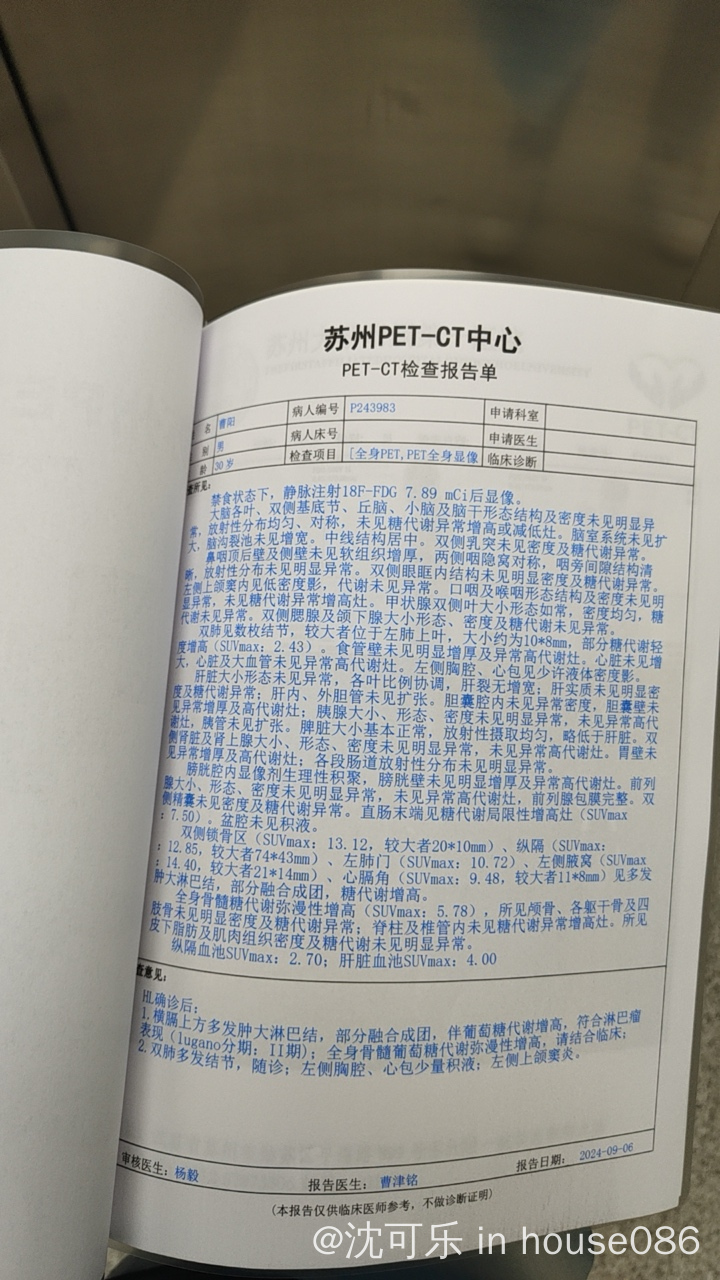 苏州PET-CT中心
PET-CT检查报告单
名 曹阳 病人编号 P243983 申请科室
别 男 病人床号 申请医生
龄 30岁 检查项目 [全身PET,PET全身显像 临床诊断
查所见:
禁食状态下，静脉注射18F-FDG 7.89 mCi后显像。
大脑各叶、双侧基底节、丘脑、小脑及脑干形态结构及密度未见明显异
常，放射性分布均匀、对称，未见糖代谢异常增高或减低灶。脑室系统未见扩
大，脑沟裂池未见增宽。中线结构居中。双侧乳突未见密度及糖代谢异常。
鼻咽顶后壁及侧壁未见软组织增厚，两侧咽隐窝对称，咽旁间隙结构清
晰，放射性分布未见明显异常。双侧眼眶内结构未见明显密度及糖代谢异常。
左侧上颌窦内见低密度影，代谢未见异常。口咽及喉咽形态结构及密度未见明
显异常，未见糖代谢异常增高灶。甲状腺双侧叶大小形态如常，密度均匀，糖
代谢未见异常。双侧腮腺及颌下腺大小形态、密度及糖代谢未见异常。
双肺见数枚结节，较大者位于左肺上叶，大小约为10*8mm，部分糖代谢轻
度增高（SUVmax: 2.43）。食管壁未见明显增厚及异常高代谢灶。心脏未见增
大，心脏及大血管未见异常高代谢灶。左侧胸腔、心包见少许液体密度影。
肝脏大小形态未见异常，各叶比例协调，肝裂无增宽；肝实质未见明显密
度及糖代谢异常；肝内、外胆管未见扩张。胆囊腔内未见异常密度，胆囊壁未
见异常增厚及高代谢灶；胰腺大小、形态、密度未见明显异常，未见异常高代
谢灶，胰管未见扩张。脾脏大小基本正常，放射性摄取均匀，略低于肝脏。双
侧肾脏及肾上腺大小、形态、密度未见明显异常，未见异常高代谢灶。胃壁未
见异常增厚及高代谢灶；各段肠道放射性分布未见明显异常。
膀胱腔内显像剂生理性积聚，膀胱壁未见明显增厚及异常高代谢灶。前列
腺大小、形态、密度未见明显异常，未见异常高代谢灶，前列腺包膜完整。双
侧精囊未见密度及糖代谢异常。直肠末端见糖代谢局限性增高灶（SUVmax
: 7.50）。盆腔未见积液。
双侧锁骨区（SUVmax: 13.12，较大者20*10mm）、纵隔（SUVmax:
: 12.85，较大者74*43mm）、左肺门（SUVmax: 10.72）、左侧腋窝（SUVmax
: 14.40，较大者21*14mm）、心膈角（SUVmax: 9.48，较大者11*8mm）见多发
肿大淋巴结，部分融合成团，糖代谢增高。
全身骨髓糖代谢弥漫性增高（SUVmax: 5.78），所见颅骨、各躯干骨及四
肢骨未见明显密度及糖代谢异常；脊柱及椎管内未见糖代谢异常增高灶。所见
皮下脂肪及肌肉组织密度及糖代谢未见明显异常。
纵隔血池SUVmax: 2.70；肝脏血池SUVmax: 4.00
查意见:
HL确诊后:
1.横膈上方多发肿大淋巴结，部分融合成团，伴葡萄糖代谢增高，符合淋巴瘤
表现（lugano分期: II期）；全身骨髓葡萄糖代谢弥漫性增高，请结合临床；
2.双肺多发结节，随诊；左侧胸腔、心包少量积液；左侧上颌窦炎。
审核医生: 杨毅 报告医生: 曹津铭 报告日期: 2024-09-06
(本报告仅供临床医师参考，不做诊断证明)
@沈可乐 in house086